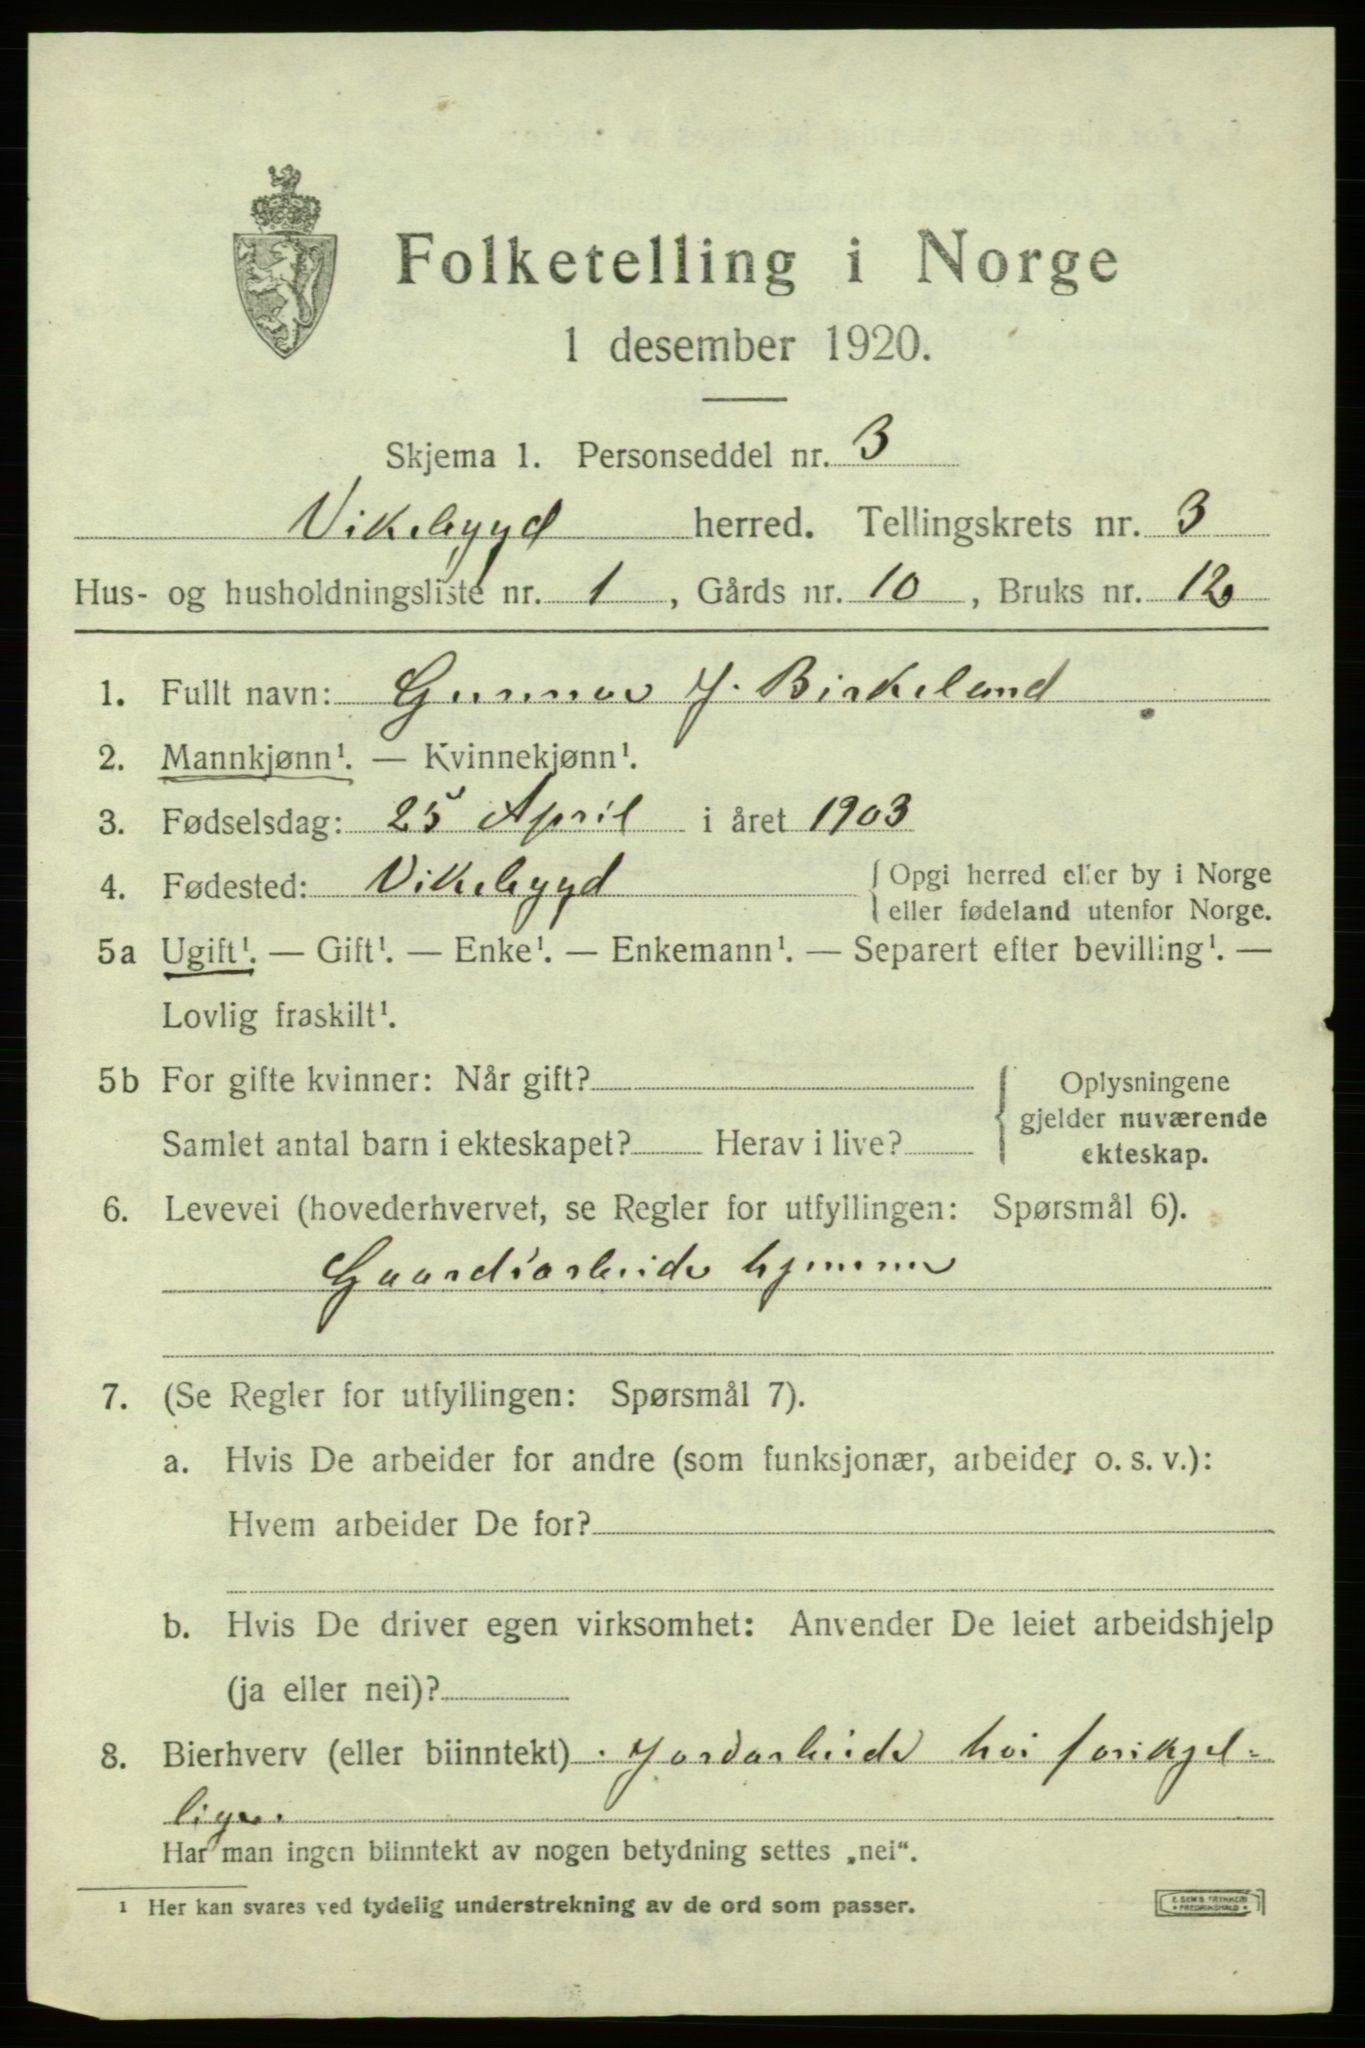 Folketelling i Norge
1 desember 1920.
Skjema 1. Personseddel nr. 3
Vikebygd herred. Tellingskrets nr. 3
Hus- og husholdningsliste nr. 1, Gårds nr. 10, Bruks nr. 12
1. Fullt navn: Gunnar J. Birkeland
2. Mannkjønn¹. — Kvinnekjønn¹.
3. Fødselsdag: 25 April i året 1903
4. Fødested: Vikebygd { Opgi herred eller by i Norge
eller fødeland utenfor Norge.
5a Ugift¹. — Gift¹. — Enke¹. — Enkemann¹. — Separert efter bevilling¹. —
Lovlig fraskilt¹.
5b For gifte kvinner: Når gift? { Oplysningene
gjelder nuværende
Samlet antal barn i ekteskapet? Herav i live? ekteskap.
6. Levevei (hovederhvervet, se Regler for utfyllingen: Spørsmål 6).
Gaardsarbeide hjemme
7. (Se Regler for utfyllingen: Spørsmål 7).
a. Hvis De arbeider for andre (som funksjonær, arbeider o. s. v.):
Hvem arbeider De for?
b. Hvis De driver egen virksomhet: Anvender De leiet arbeidshjelp
(ja eller nei)?
8. Bierhverv (eller biinntekt) . Jordarbeide hos forskjel-
lige.
Har man ingen biinntekt av nogen betydning settes „nei“.
1 Her kan svares ved tydelig understrekning av de ord som passer.